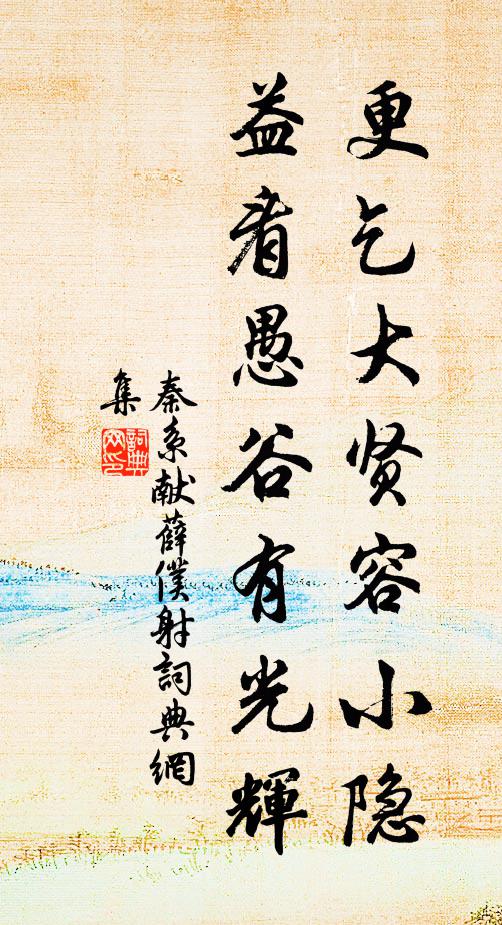 更乞大贤容小隐
益看愚谷有光輝
秦系献薛僕射詞典網
集
詞典网印